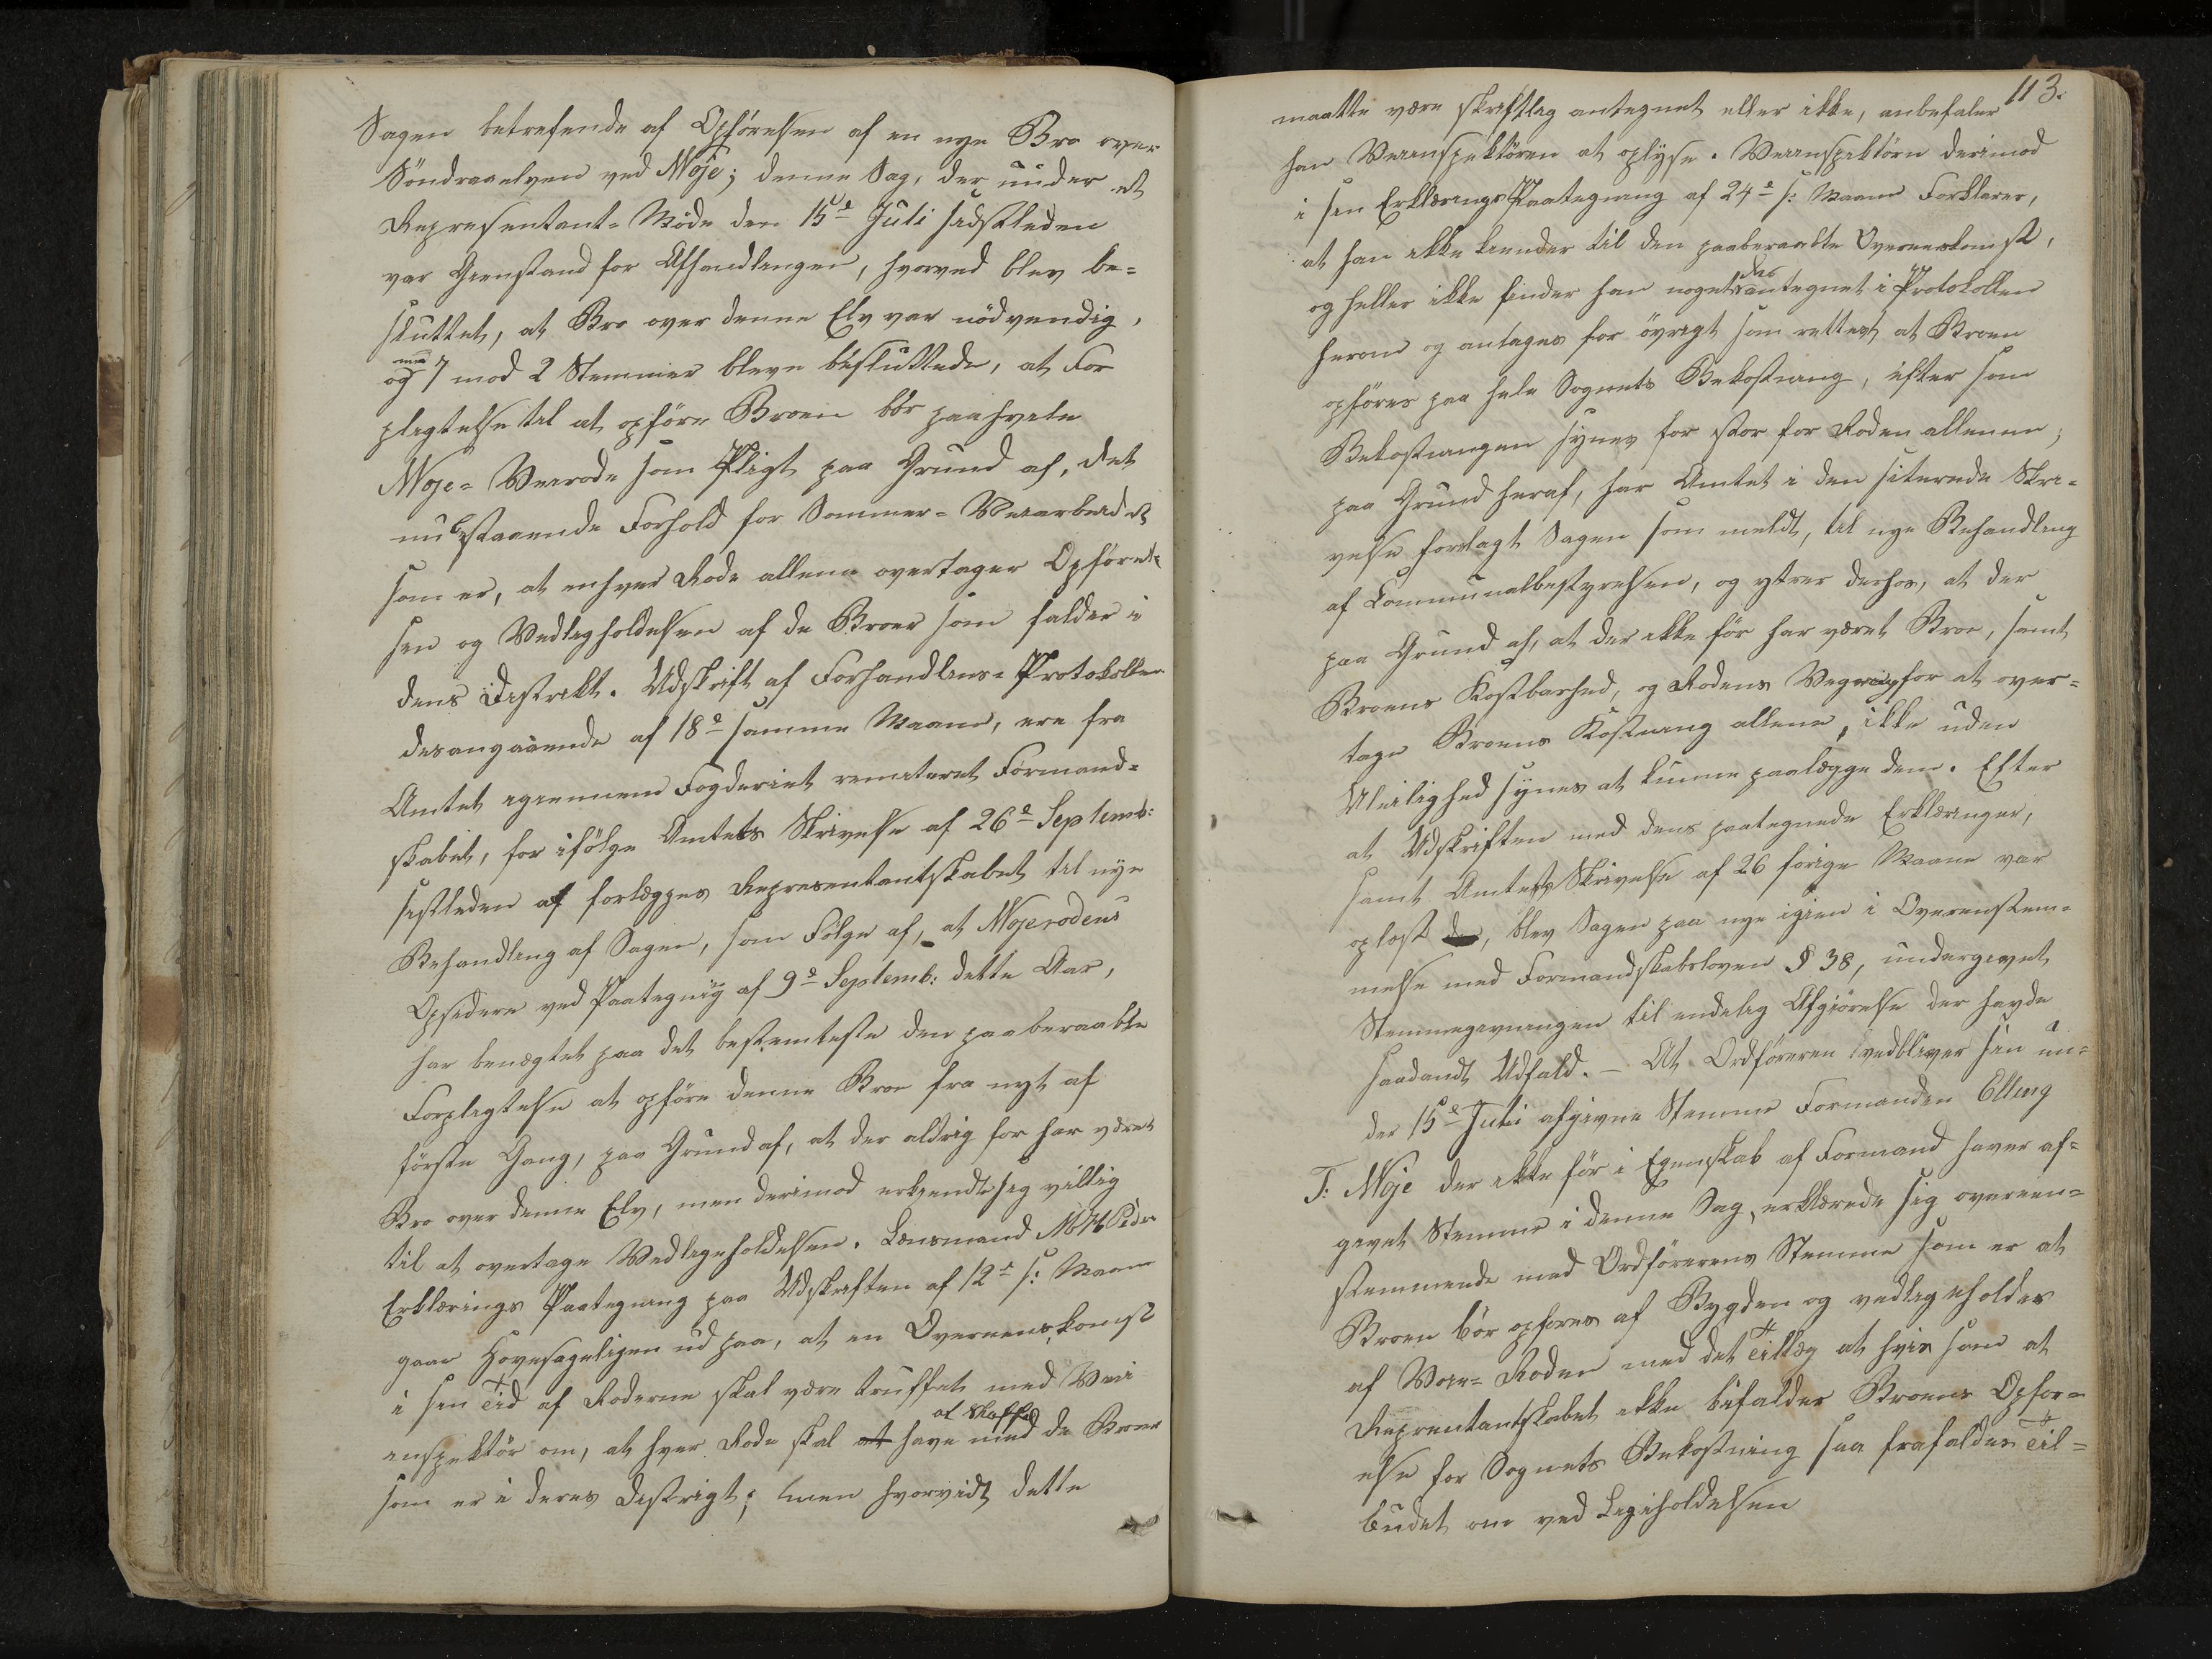 Sagen betrefende af Opförelsen af en nye Bro over
Söndraaelven ved Moje; denne Sag, der under et
Representant-Möde den 15de Juli sidstleden
var Gienstand for Afhandlingen, hvorved blev be=
sluttet, at Bro over denne Elv var nödvendig,
og med 7 mod 2 Stemmer bleve besluttede, at For
pligtelse til at opföre Broen bör paahvile
Moje- Veirode som Pligt paa Grund af, det
nu bestaaende Forhold for Sommer-Veiarbeidet
som er, at enhver Rode allene overtager Opförel=
sen og Vedligholdelsen af de Broer som falder i
dens Distrikt. Udskrift af Forhandlins-Protokollen
desangaaende af 18de samme Maane, ere fra
Amtet igiennem Fogderiet remiteret Formand=
skabet, for ifölge Amtets Skrivelse af 26de Septemb:
sistleden at forlægges Representantskabet til nye
Behandling af Sagen, som Fölge af, at Mojerodens
Opsidere ved Paategning af 9de Septemb: dette Aar,
har benægtet paa det bestemteste den paaberaabte
Forpligtelse at opföre denne Broe fra nyt af
förste Gang, paa Grund af, at der aldrig för har været
Bro over denne Elv, men derimod erkiendte sig villig
til at overtage Vedligeholdelsen. Lensmand
Erklærings Paategning paa Udskriften af 12te s: Maane
gaar Hovesageligen ud paa, at en Overenenskomst
i sin Tid af Roderne skal være truffet med Vei
inspektör om, at hver Rode skal at have med at skaffe de Broer
som er i deres Distrigt; men hvorvidt dette
113.
maatte være skriftlig antegnet eller ikke, anbefaler
han Veiinspektören at oplyse. Veiinspektörn derimod
i sin Erklærings Paategning af 24de s: Maane Forklarer,
at han ikke kiender til den paaberaabte Overenskomst,
og heller ikke finder han noget antegnet i Protokollen
herom og antages for övrigt som rettest at Broen
opföres paa hele Sognets Bekostning, efter som
Bekostningen synes for stor for Roden allene;
paa Grund heraf, har Amtet i den siterede Skri=
velse forelagt Sagen som meldt, til nye Behandling
af Communalbestyrelsen, og ytrer derhos, at der
paa Grund af, at der ikke för har været Broe, samt
Broens Kostbarhed, og Rodens for at over=
tage Broens Kostning allene, ikke uden
Uleilighed synes at kunne paalægge dem. Efter
at Udskriften med dens paategnede Erklæringer,
samt Amtets Skrivelse af 26 forige Maane var
oplæst, blev Sagen paa nye igien i Overenstem=
melse med Formandskabsloven § 38, undergivet
Stemmegivningen til endelig Afgiörelse der havde
saadandt Udfald. – At Ordföreren vedbliver sin un=
der 15de Juli afgivne Stemme Formanden Elling
T: Moje der ikke för i Egenskab af Formand haver af=
givet Stemme i denne Sag, erklærede sig overeen=
stemmende med Ordförerens Stemme som er at
Broen bör opföres af Bygden og vedligeholdes
af Veie-Roden med det Tillæg at hvis som at
Reprentantskabet ikke bifalder Broens Opför=
else for Sognets Bekostning saa frafaldes Til=
budet om ved Ligeholdelsen